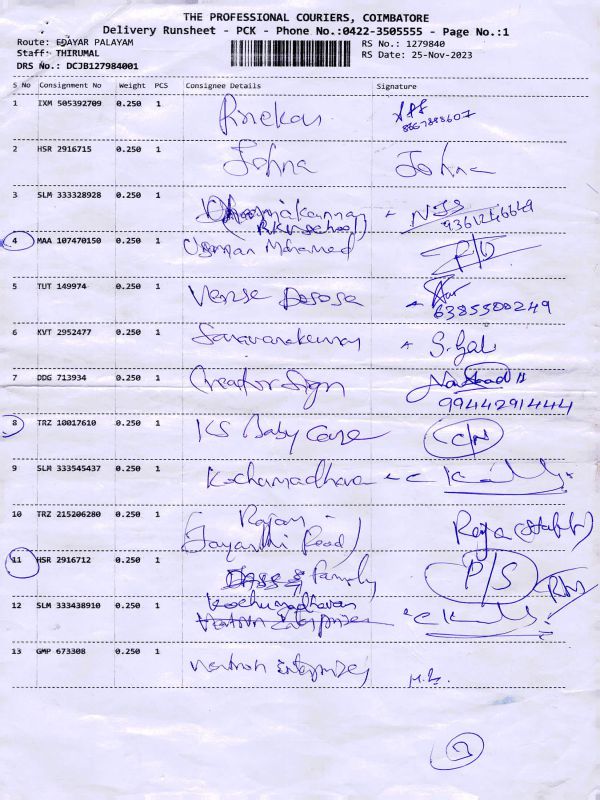 THE PROFESSIONAL COURIERS, COIMBATORE
Delivery Runsheet - PCK - Phone No.:0422-3505555 - Page No.:1
Route: EDAYAR PALAYAM RS No.: 1279840
Staff: THIRUMAL RS Date: 25-Nov-2023
DRS No.: DCJB127984001
S No Consignment No Weight PCS Consignee Details Signature
1 IXM 505392709 0.250 1
2 HSR 2916715 0.250 1 Johna Johna
3 SLM 333328928 0.250 1
9361246649
4 MAA 107470150 0.250 1 Usman Mohamed P/O
5 TUT 149974 0.250 1
6385500249
6 KVT 2952477 0.250 1 Saravanakumar S. Gal
7 DDG 713934 0.250 1 Creator Sign
99442914444
8 TRZ 10017610 0.250 1 KS Baby Care C/N
9 SLM 333545437 0.250 1 Kochumadhava
10 TRZ 215206280 0.250 1 Rajam Raja (Staff)
(Jayanthi Road)
11 HSR 2916712 0.250 1 family P/S
12 SLM 333438910 0.250 1 Kochumadhavan
13 GMP 673308 0.250 1 Enterprises